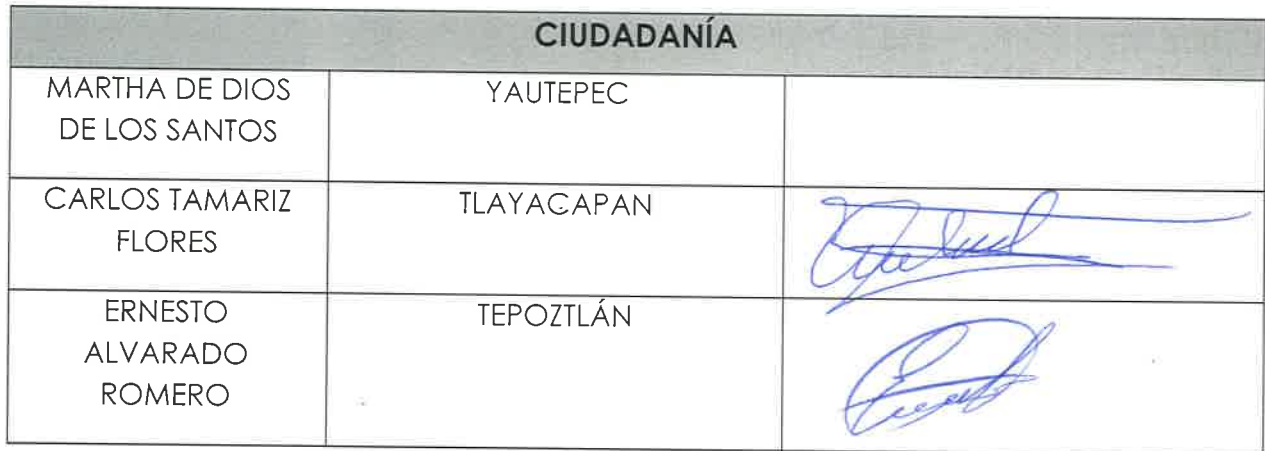 CIUDADANÍA
MARTHA DE DIOS
DE LOS SANTOS
YAUTEPEC
CARLOS TAMARIZ
FLORES
TLAYACAPAN
ERNESTO
ALVARADO
ROMERO
TEPOZTLÁN